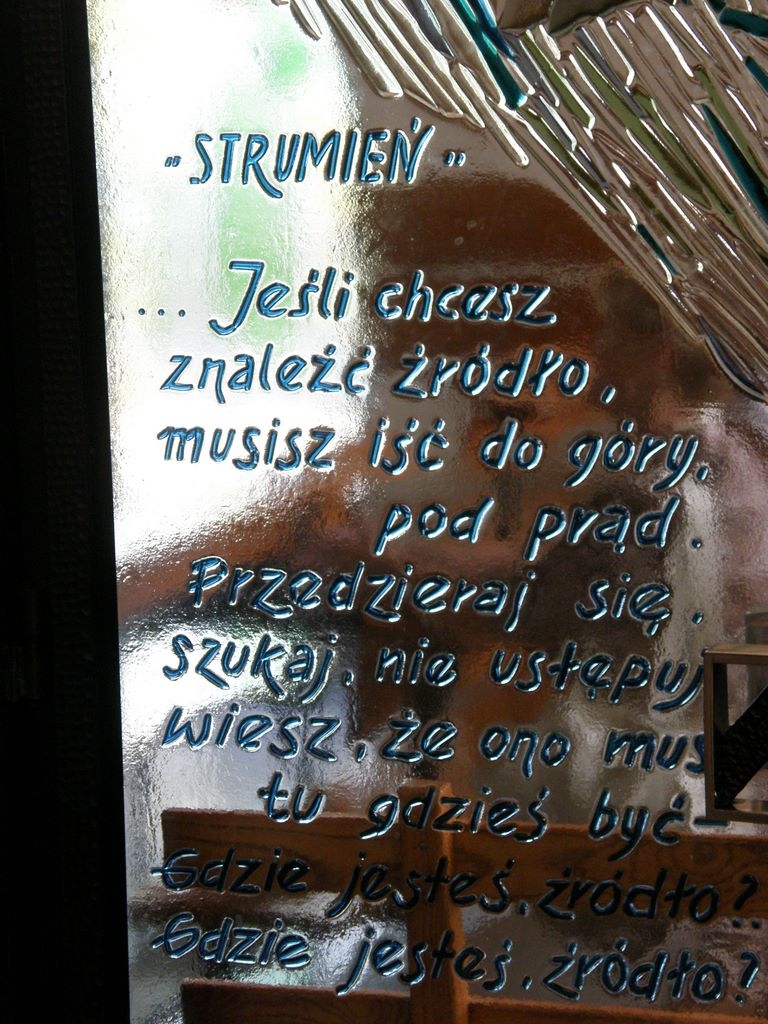 „STRUMIEŃ"
... Jeśli chcesz
znaleźć żródło,
musisz iść do góry,
pod prąd.
Przedzieraj się,
szukaj, nie ustępuj
wiesz, że ono
tu gdzieś być-
Gdzie jesteś, żródło?..
Gdzie jesteś, żródło?